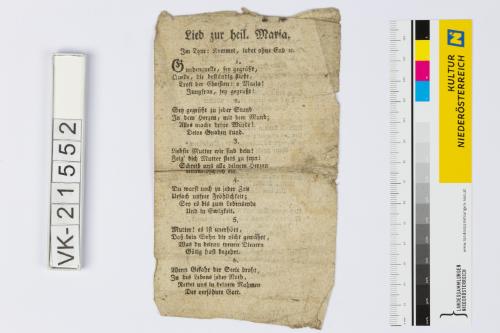 VK-21552
Lied zur heil. Maria.
Im Tone: Kommet, lobet ohne End ꝛc.
1.
Gnadenquelle, sey gegrüßt,
Quelle, die beständig fließt,
Trost der Christen: o Maria!
Jungfrau, sey gegrüßt!
2.
Sey gegrüßt zu jeder Stund
In dem Herzen, mit dem Mund;
Alles mache deine Würde!
Deine Gnaden kund.
3.
Liebste Mutter wir sind dein!
Zeig' dich Mutter stets zu seyn!
Schreib uns alle deinem Herzen
4.
Du warst noch zu jeder Zeit
Ursach unsrer Fröhlichkeit;
Sey es bis zum Lebensende
Und in Ewigkeit.
5.
Mutter! es ist unerhört,
Daß dein Sohn dir nicht gewährt,
Was du deinen treuen Dienern
Gütig hast begehrt.
6.
Wenn Gefahr der Seele droht,
In des Lebens jeder Noth,
Rettet uns in deinem Nahmen
Der versöhnte Gott.
KULTUR
NIEDERÖSTERREICH
LANDESSAMMLUNGEN
NIEDERÖSTERREICH